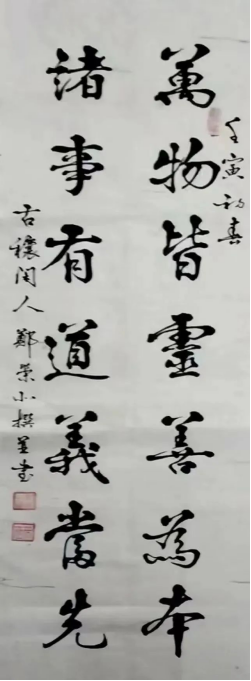 壬寅初春
萬物皆靈善為本
諸事有道義當先
古穰闲人鄭榮小撰并书